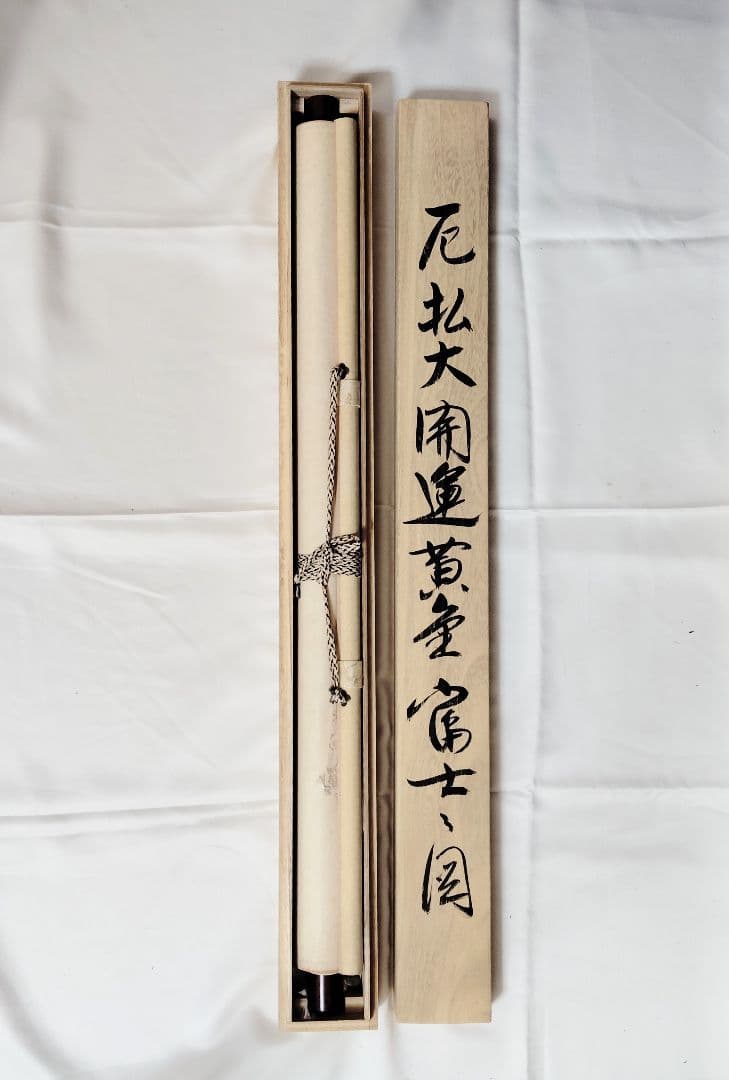 厄払大開運黄金富士之図